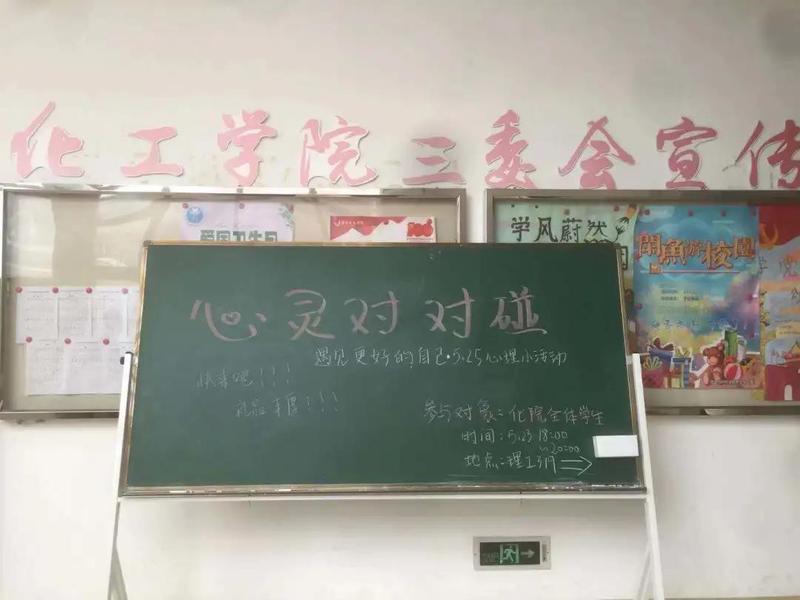 化工学院三委会宣传
爱国卫生月
学风蔚然
闲鱼游校园
心灵对对碰
遇见更好的自己·5.25心理小活动
快来呢!!!
礼品丰厚!!!
参与对象:化院全体学生
时间:5.23 18:00
~20:00
地点:理工319